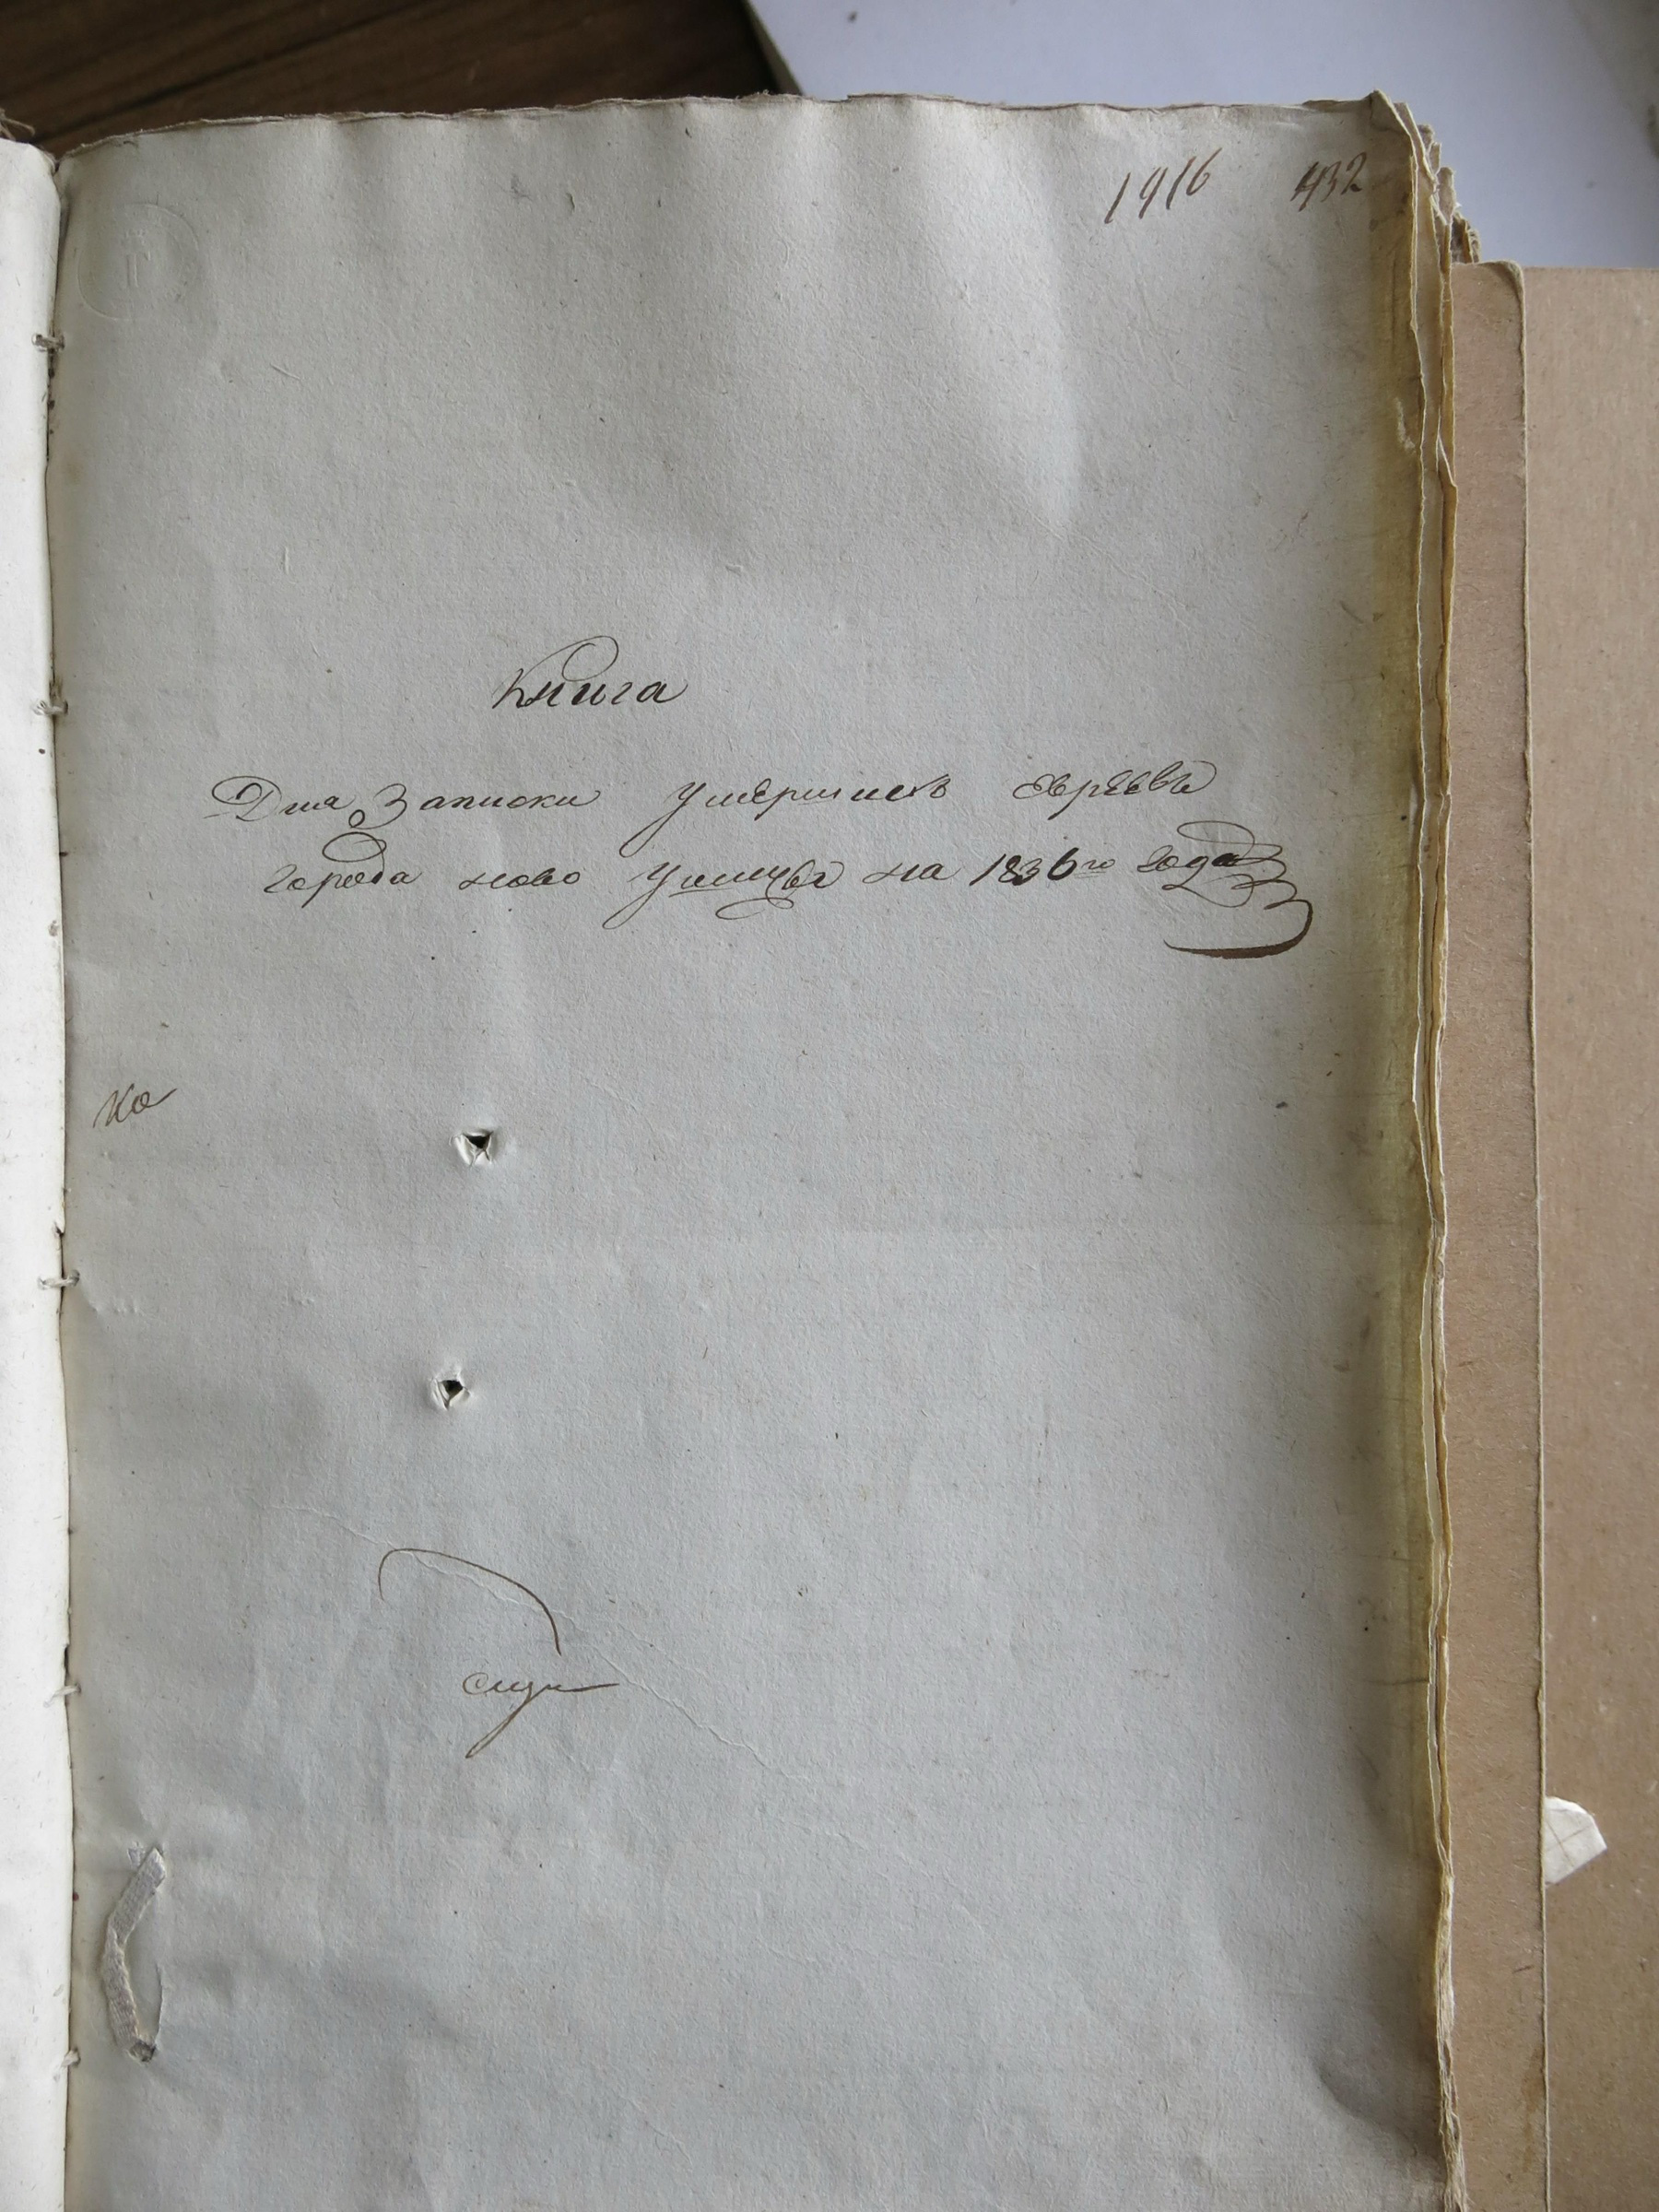 1916 432
Книга
Для Записки Умершихъ Евреевъ
города ново Ушицы на 1836го года
Ко